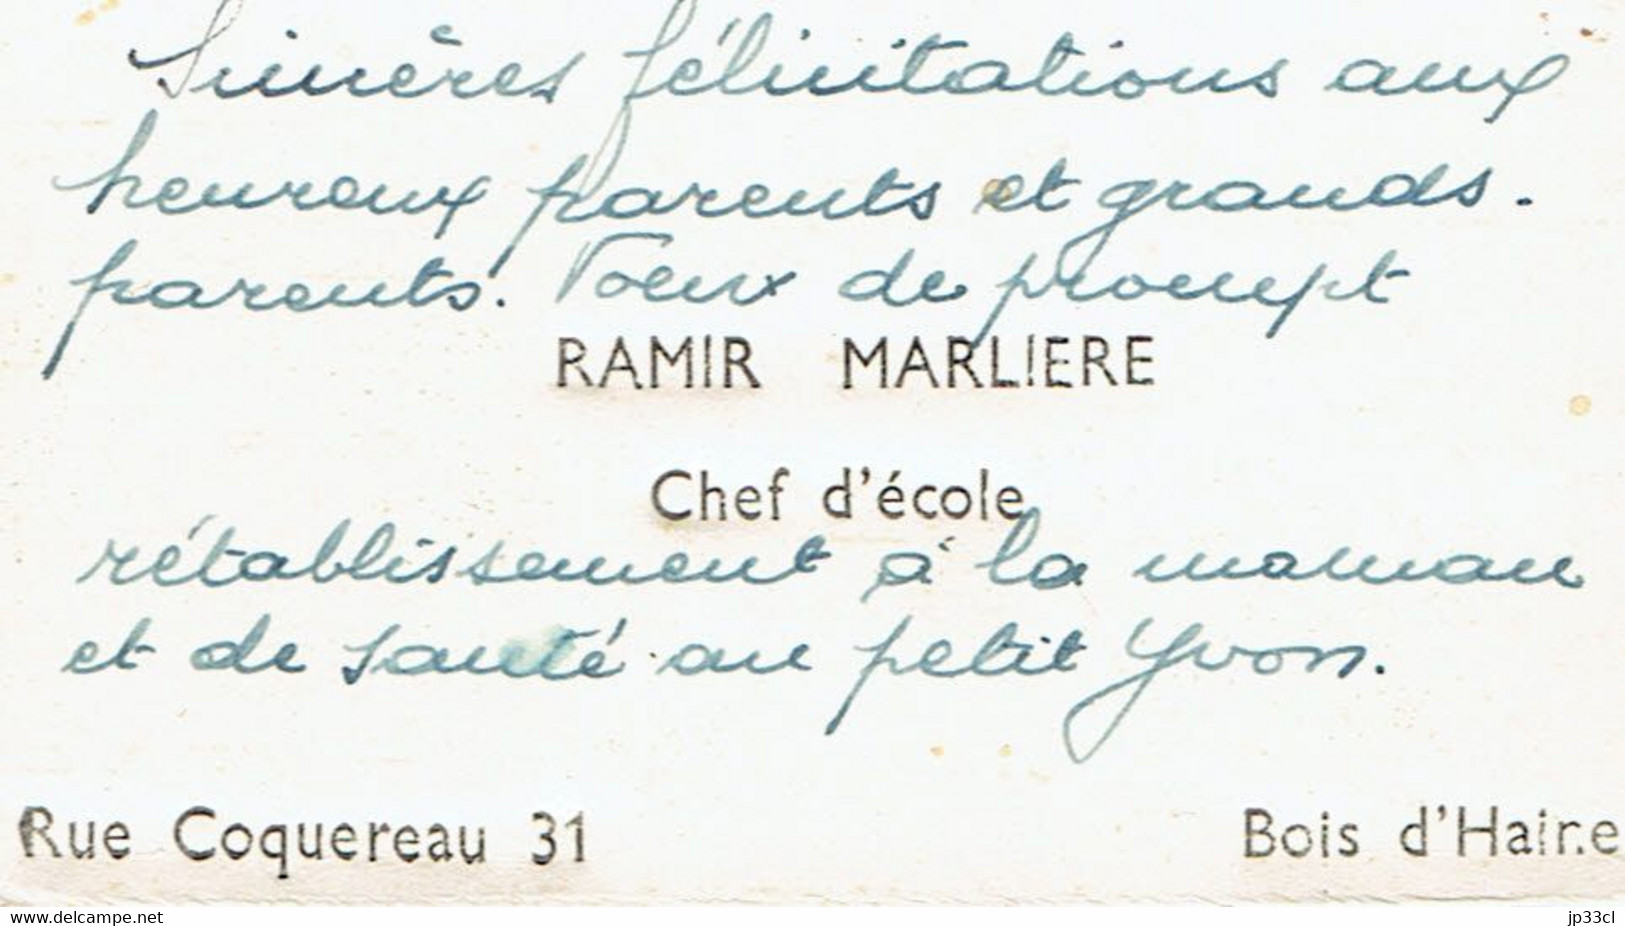 Sincères félicitations aux
heureux parents et grands-
parents. Voeux de prompt
RAMIR MARLIERE
Chef d'école
rétablissement à la maman
et de santé au petit Yvon.
Rue Coquereau 31 Bois d'Haine
www.delcampe.net jp33cl